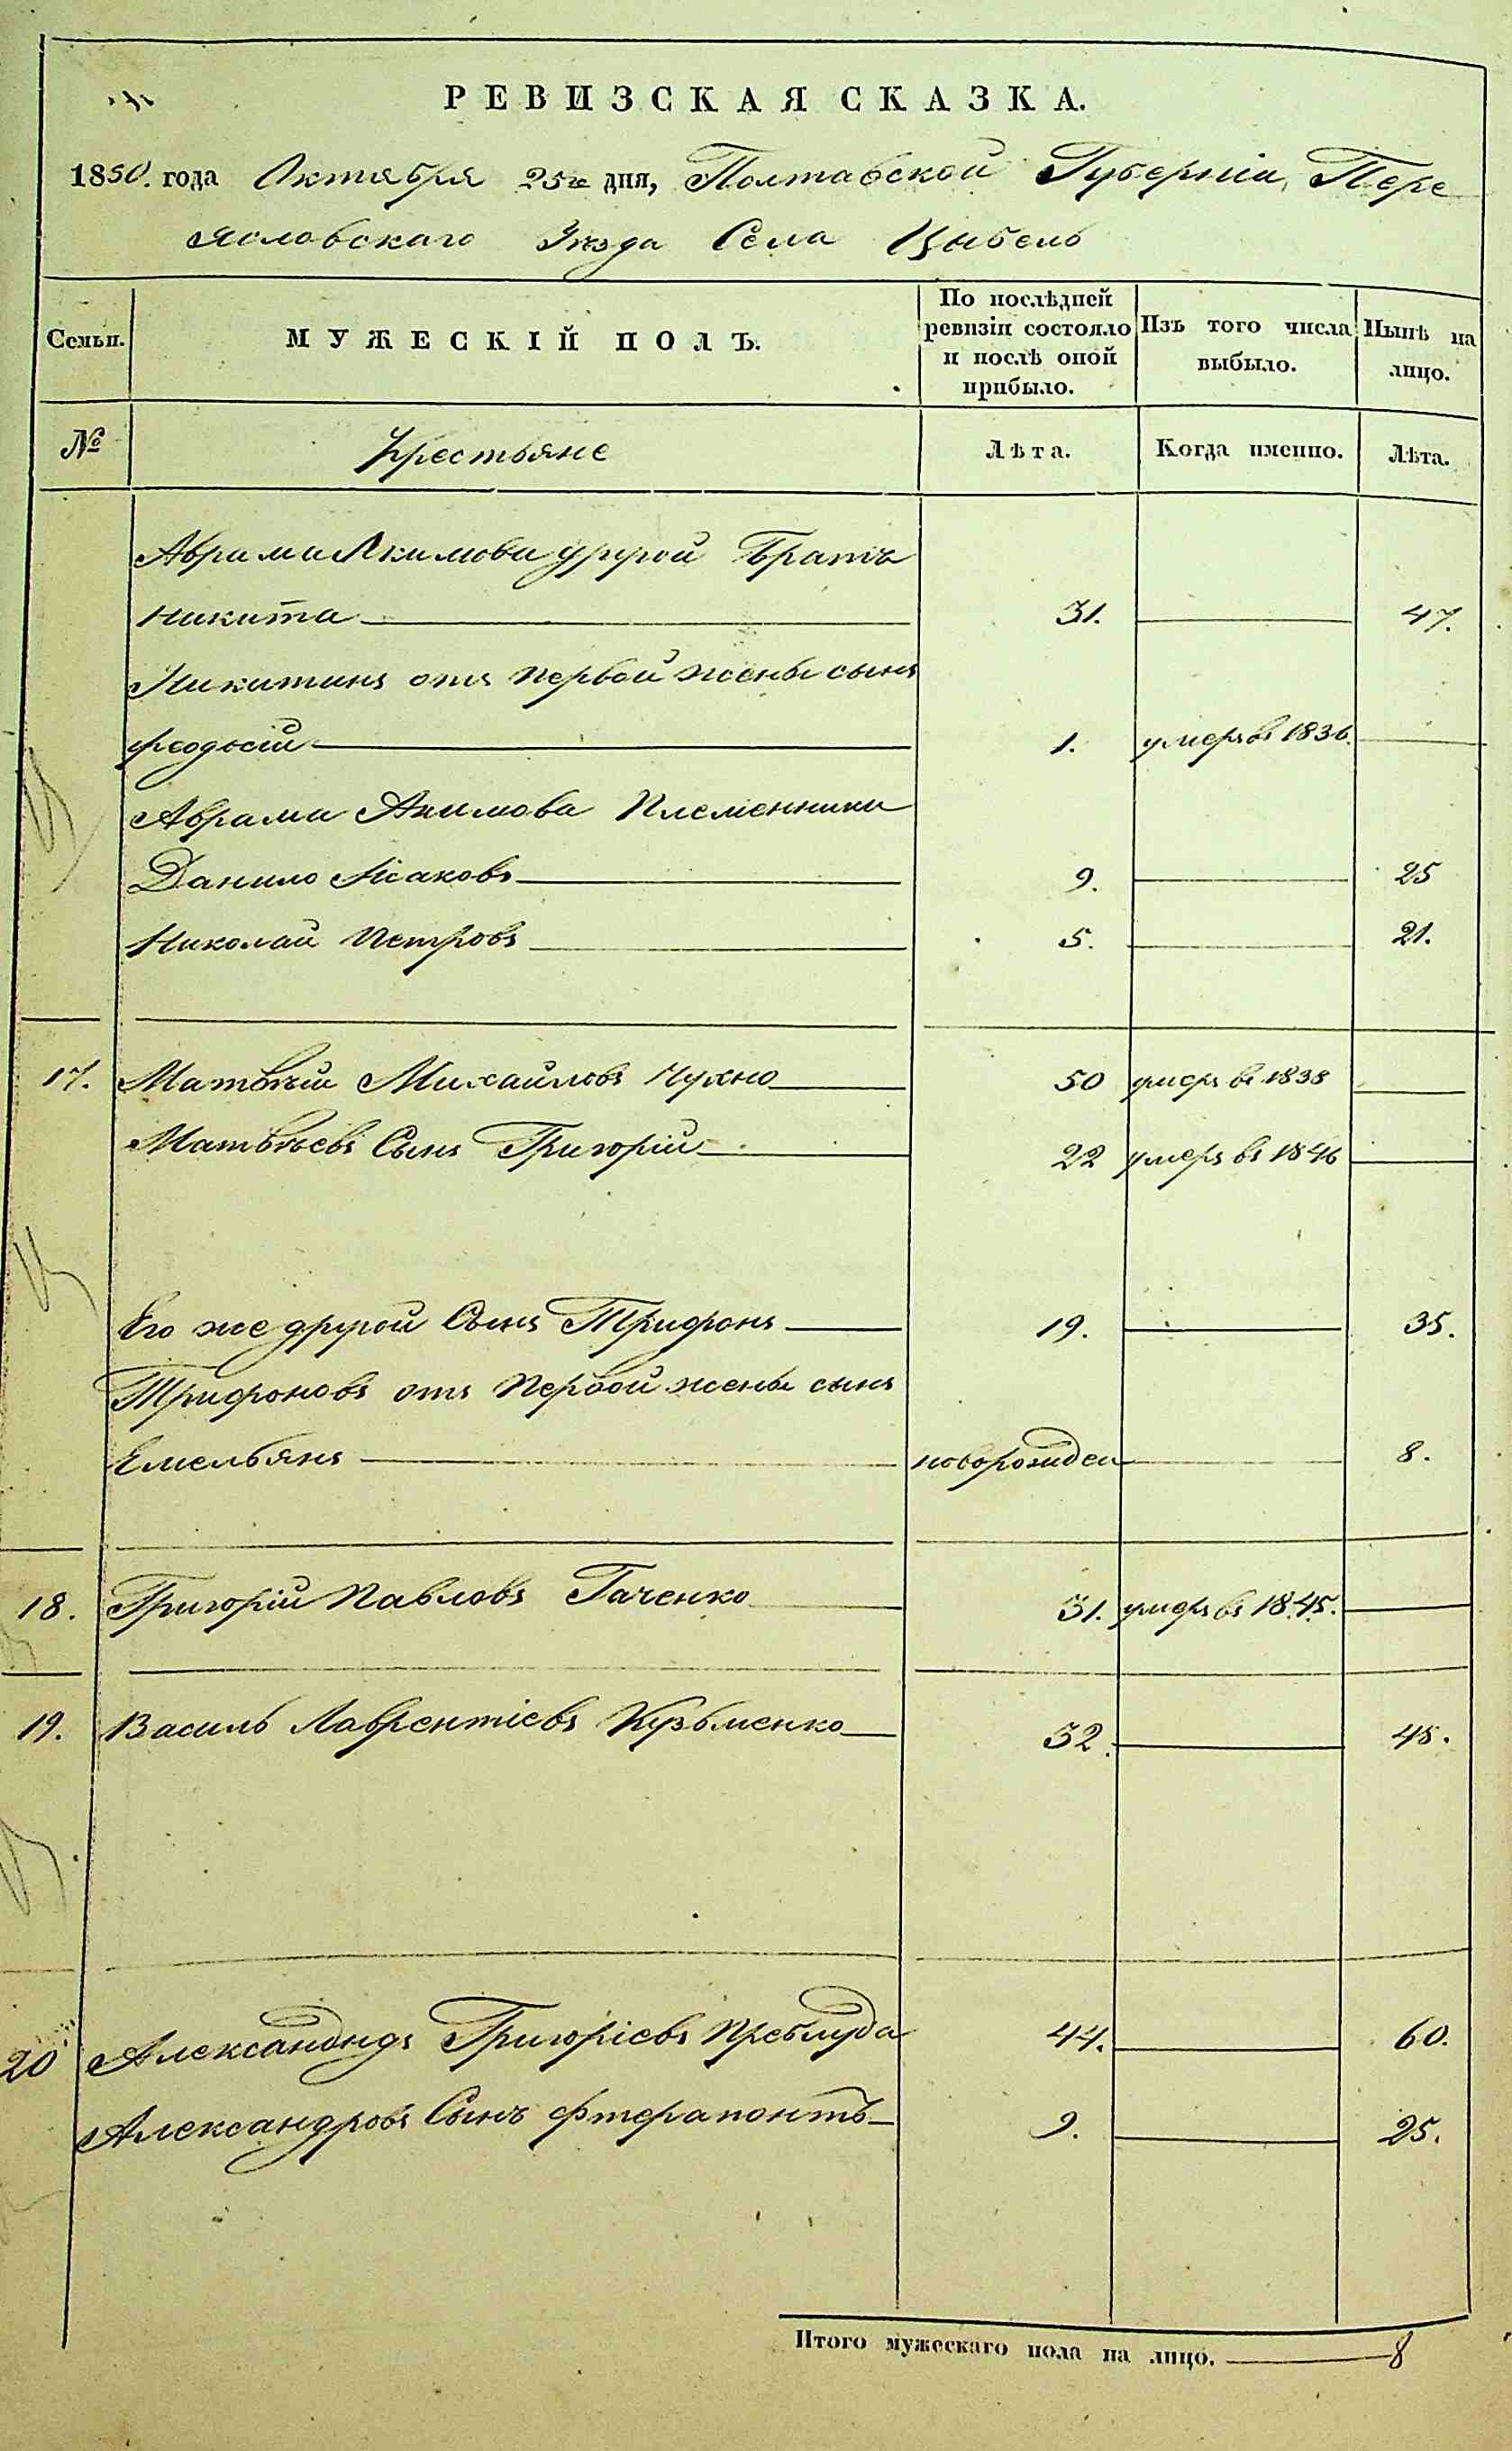 РЕВИЗСКАЯ СКАЗКА.
1850. года Октября 25го дня, Полтавской Губерніи, Пере
яславскаго Уѣзда Села Цыбель
Семьи. МУЖЕСКІЙ ПОЛЪ. По послѣдней ревизіи состояло и послѣ оной прибыло. Изъ того числа выбыло. Нынѣ на лицо.
№ Крестьяне Лѣта. Когда именно. Лѣта.
Аврама Акимова другой Братъ
Никита 31. 47.
Никитинъ отъ первой жены сынъ
Феодосій 1. умеръ въ 1836.
Аврама Акимова Племенники
Данило Исаковъ 9. 25
Николай Петровъ 5. 21.
17. Матвѣй Михайловъ Чухно 50 умеръ въ 1838
Матвѣевъ Сынъ Григорій 22 умеръ въ 1846
Его же другой Сынъ Трифонъ 19. 35.
Трифоновъ отъ первой жены сынъ
Емельянъ новорожден 8.
18. Григорій Павловъ Гаченко 31. умеръ въ 1845.
19. Василь Лаврентіевъ Кузьменко 32. 48.
20 Григоріевъ Преблуда 44. 60.
Александровъ Сынъ Фтерапонтъ 9. 25.
Итого мужескаго пола на лицо. 8